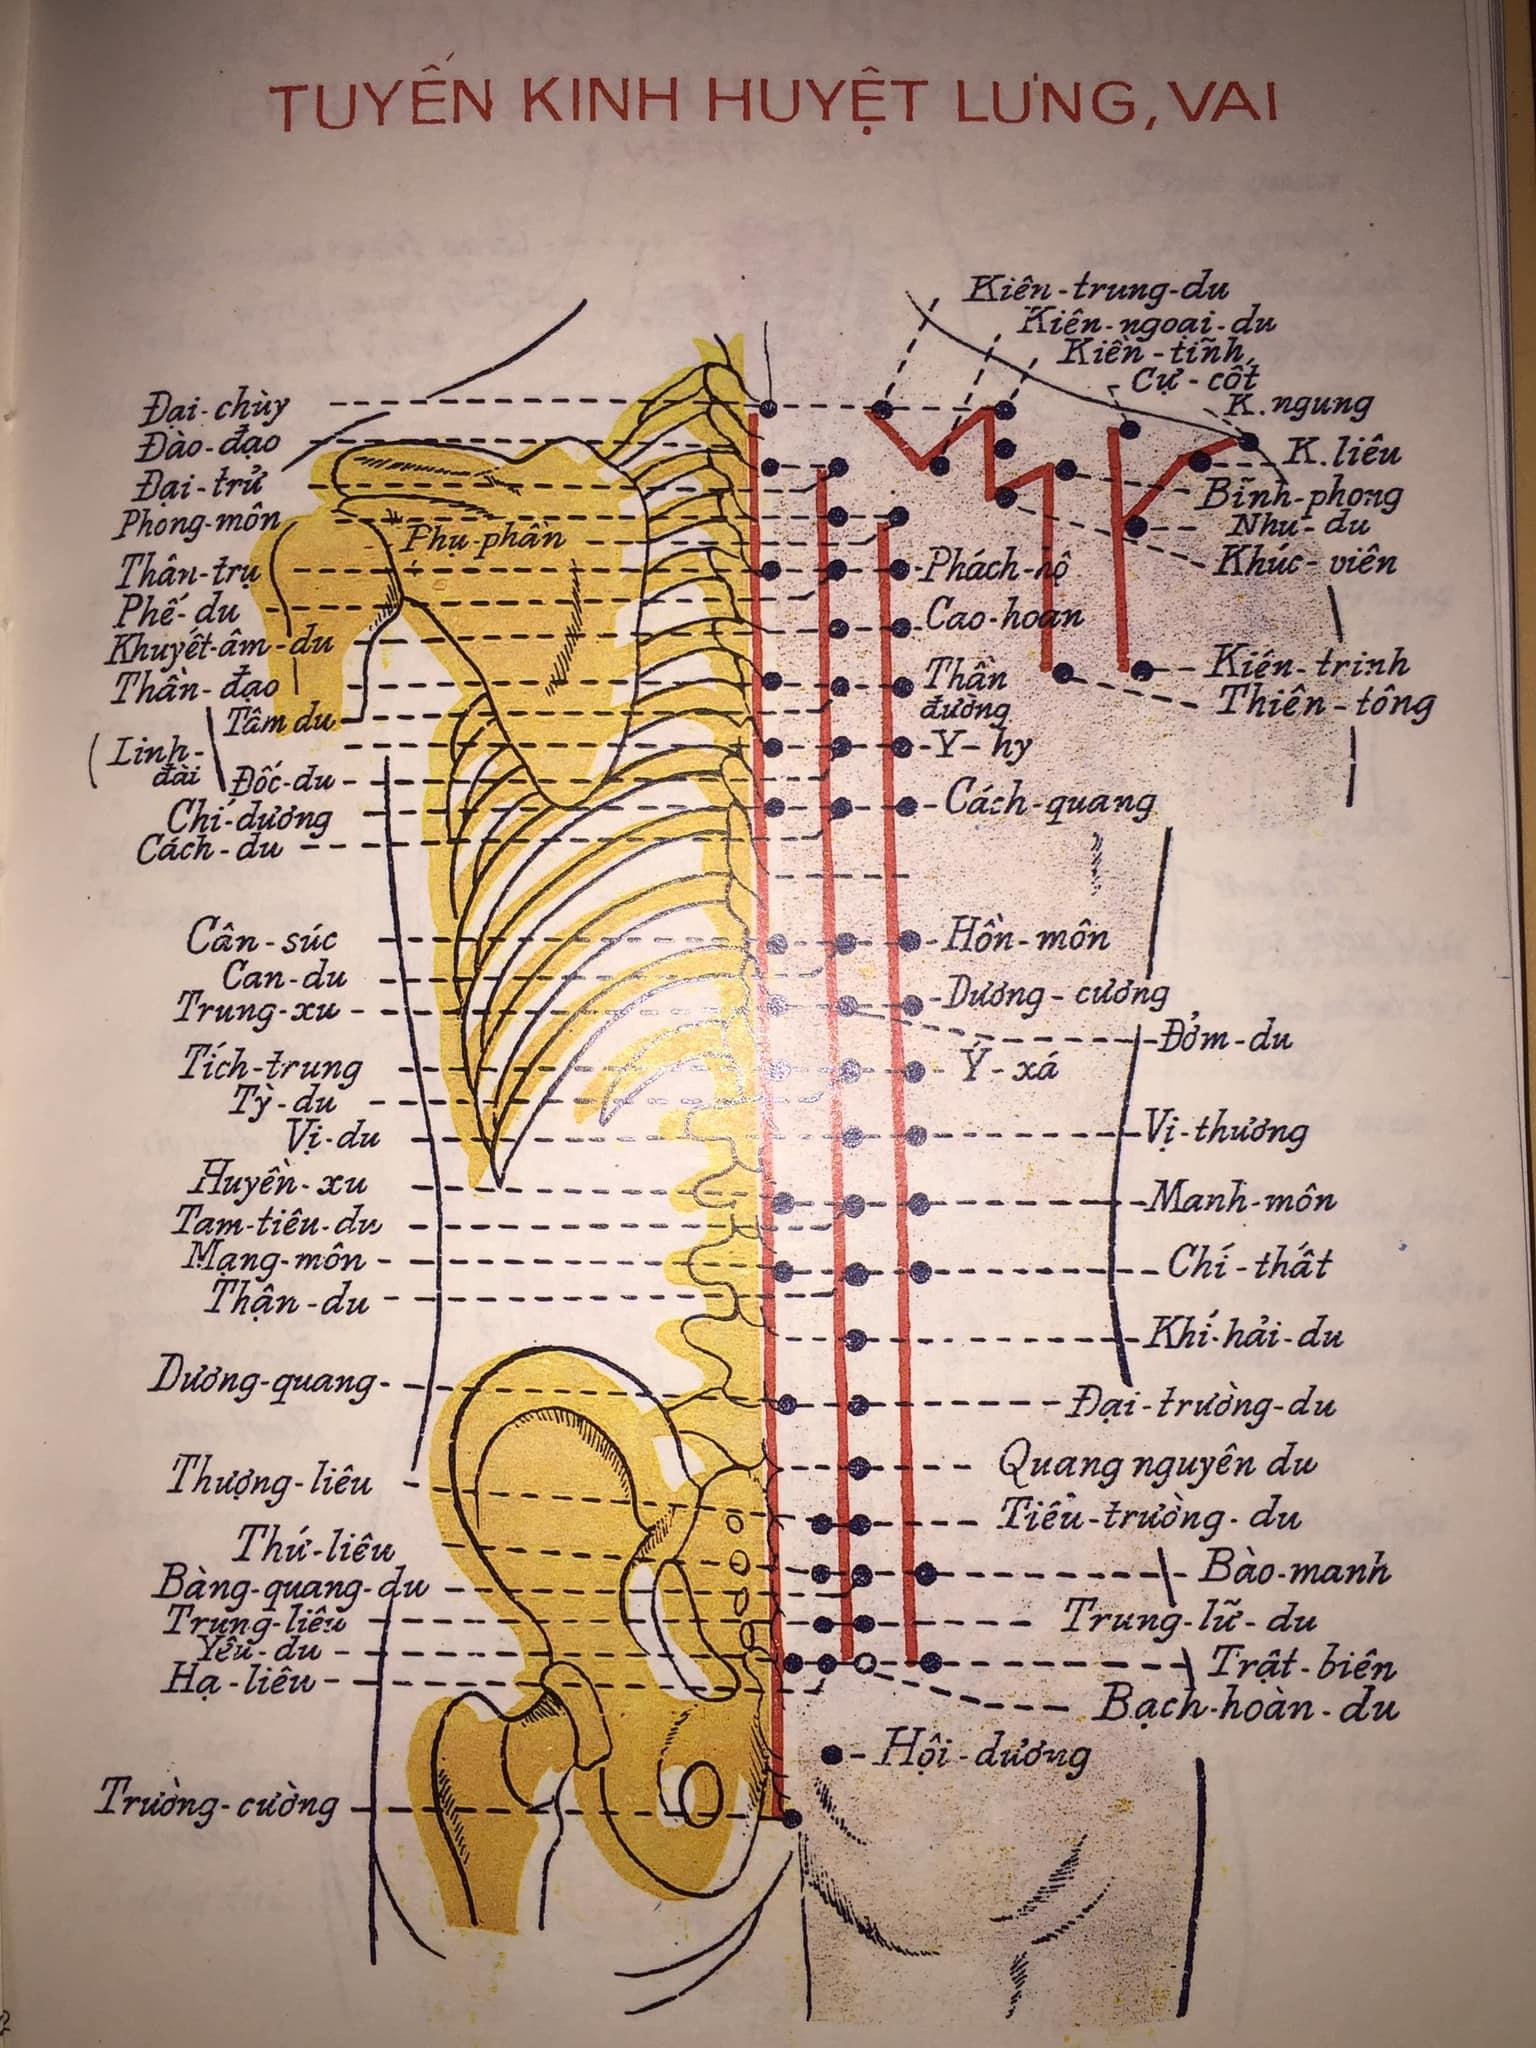 TUYẾN KINH HUYỆT LƯNG, VAI
Kiên-trung-du
Kiên-ngoại-du
Kiên-tĩnh
Cự-cốt
K.ngung
K.liêu
Bĩnh-phong
Nhu-du
Khúc-viên
Đại-chùy
Đào-đạo
Đại-trử
Phong-môn
Phụ-phần
Thân-trụ
Phế-du
Khuyết-âm-du
Thần-đạo
Tâm du
(Linh-
đài
Đốc-du
Chí-dương
Cách-du
Phách-hộ
Cao-hoan
Thần
đường
Y-hy
Cách-quang
Kiên-trinh
Thiên-tông
Cân-súc
Can-du
Trung-xu
Tích-trung
Tỳ-du
Vị-du
Huyền-xu
Tam-tiêu-du
Mạng-môn
Thận-du
Dương-quang
Hồn-môn
Dương-cương
Đởm-du
Ý-xá
Vị-thương
Manh-môn
Chí-thất
Khí-hải-du
Đại-trường-du
Quang nguyên du
Tiểu-trường-du
Thượng-liêu
Thứ-liêu
Bàng-quang-du
Trung-liêu
Yêu-du
Hạ-liêu
Trường-cường
Bào-manh
Trung-lữ-du
Trật-biên
Bạch-hoàn-du
Hội-dương